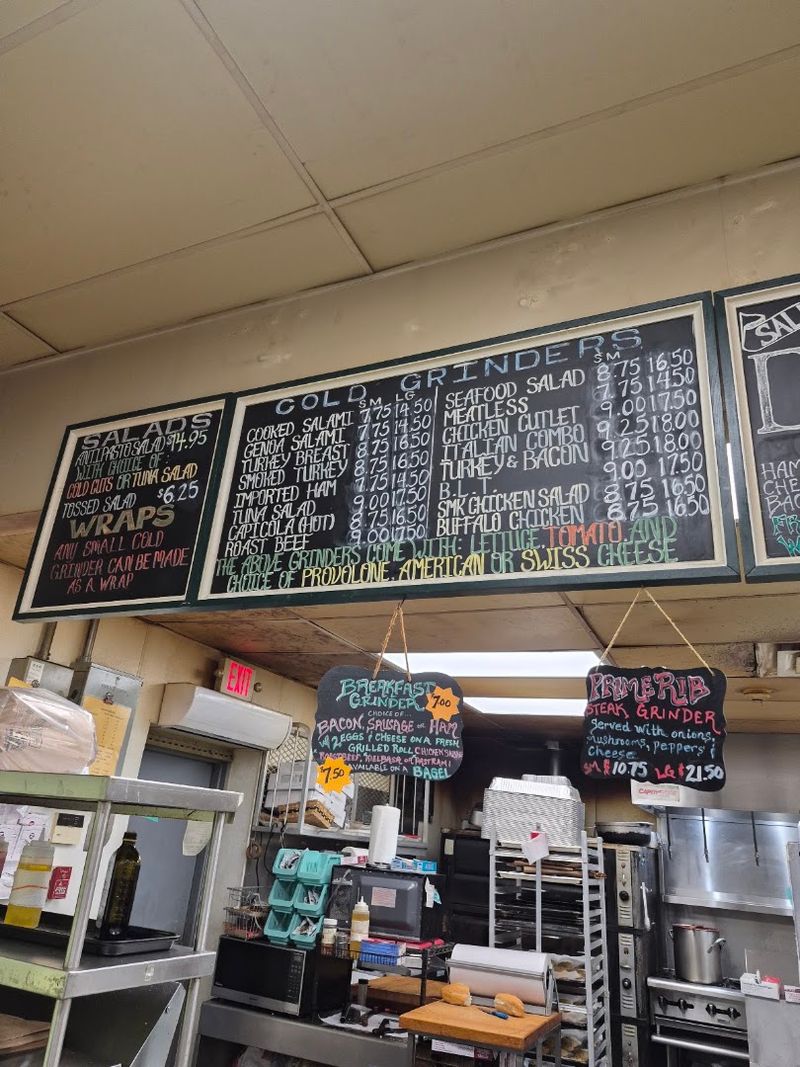 SALADS
ANTIPASTO SALAD $14.95
WITH CHOICE OF:
COLD CUTS OR TUNA SALAD
TOSSED SALAD $6.25
WRAPS
ANY SMALL COLD
GRINDER CAN BE MADE
AS A WRAP
COLD GRINDERS
SM LG
COOKED SALAMI 7.75 14.50
GENOA SALAMI 7.75 14.50
TURKEY BREAST 8.75 16.50
SMOKED TURKEY 8.75 16.50
IMPORTED HAM 7.75 14.50
TUNA SALAD 9.00 17.50
CAPICOLA (HOT) 8.75 16.50
ROAST BEEF 9.00 17.50
SM
SEAFOOD SALAD 8.75 16.50
MEATLESS 7.75 14.50
CHICKEN CUTLET 9.00 17.50
ITALIAN COMBO 9.25 18.00
TURKEY & BACON 9.25 18.00
B.L.T. 9.00 17.50
SMK CHICKEN SALAD 8.75 16.50
BUFFALO CHICKEN 8.75 16.50
THE ABOVE GRINDERS COME WITH: LETTUCE, TOMATO, AND
CHOICE OF PROVOLONE, AMERICAN OR SWISS CHEESE
EXIT
BREAKFAST
GRINDER
7.00
CHOICE OF...
BACON, SAUSAGE OR HAM
W/2 EGGS & CHEESE ON A FRESH
GRILLED ROLL
PASTRAMI
AVAILABLE ON A BAGEL
7.50
PRIME RIB
STEAK GRINDER
served with onions,
mushrooms, peppers &
cheese
SM $10.75 LG $21.50